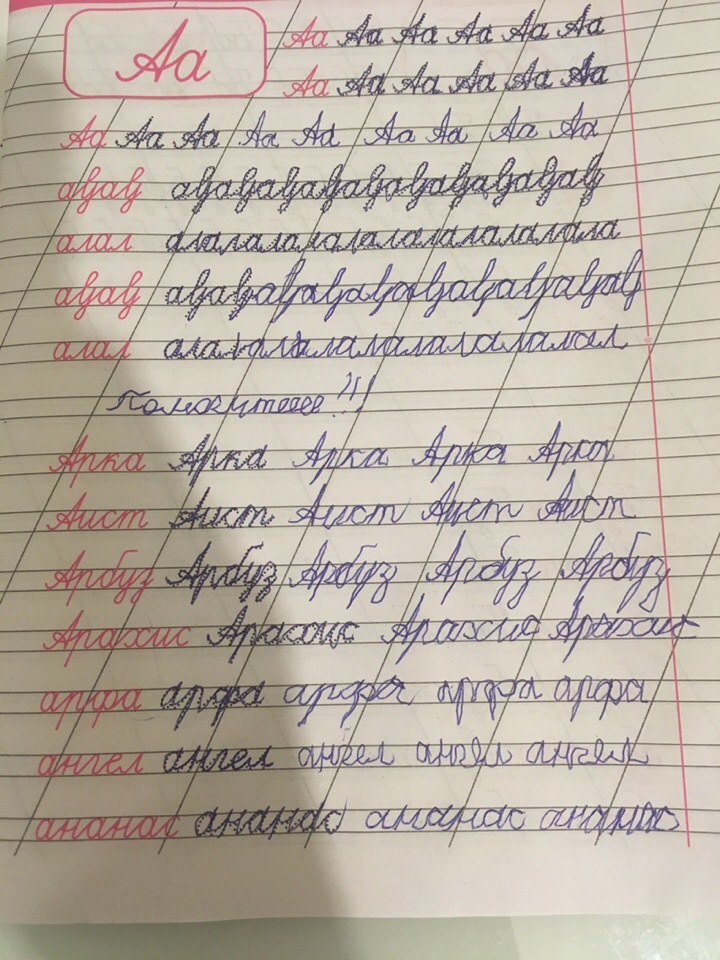 Аа Аа Аа Аа Аа Аа Аа
Аа Аа Аа Аа Аа Аа
Аа Аа Аа Аа Аа Аа Аа Аа Аа
ацац ацацацацацацацацацацац
алал алалалалалалалалалала
ацац ацацацацацацацацацацац
алал алалалалалалалалалал
Помогитеееее!!!
Арка Арка Арка Арка Арка
Аист Аист Аист Аист Аист
Арбуз Арбуз Арбуз Арбуз Арбуз
Арахис Арахис Арахис Арахис
арфа арфа арфа арфа арфа
ангел ангел ангел ангел ангел
ананас ананас ананас ананас